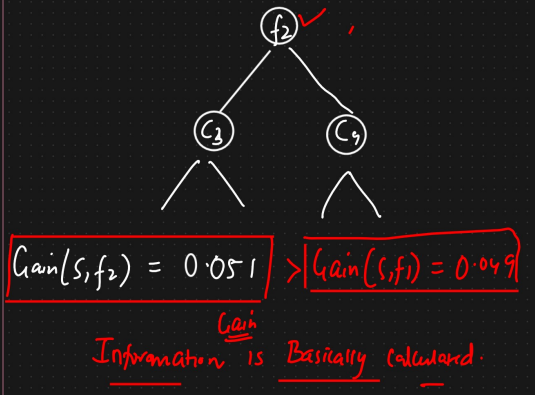 f2
C3 C4
Gain(S,f2) = 0.051 > Gain(S,f1) = 0.049
Gain
Information is Basically calculated.